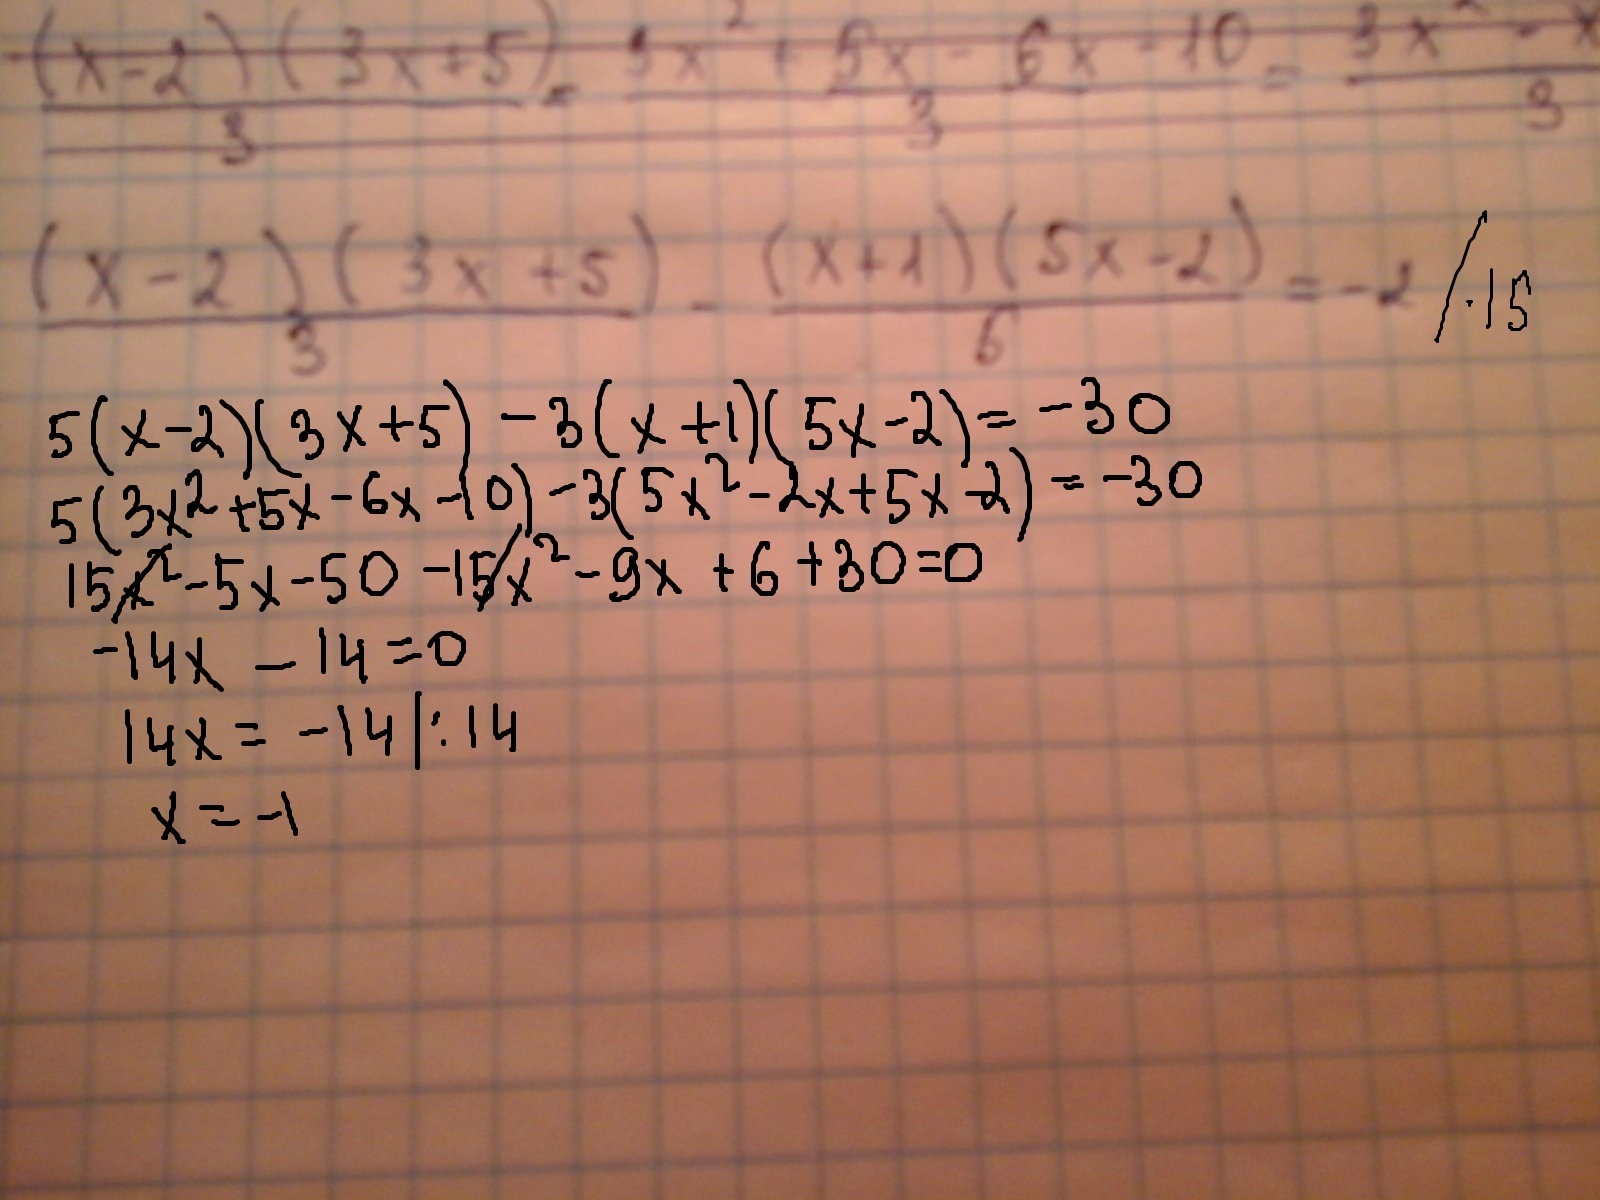 (x-2)(3x+5)/3 = 3x² + 5x - 6x - 10/3 = 3x² - x/3
(x-2)(3x+5)/3 - (x+1)(5x-2)/6 = -2 /·15
5(x-2)(3x+5) - 3(x+1)(5x-2) = -30
5(3x²+5x-6x-10) - 3(5x²-2x+5x-2) = -30
15x² - 5x - 50 - 15x² - 9x + 6 + 30 = 0
-14x - 14 = 0
14x = -14 |:14
x = -1